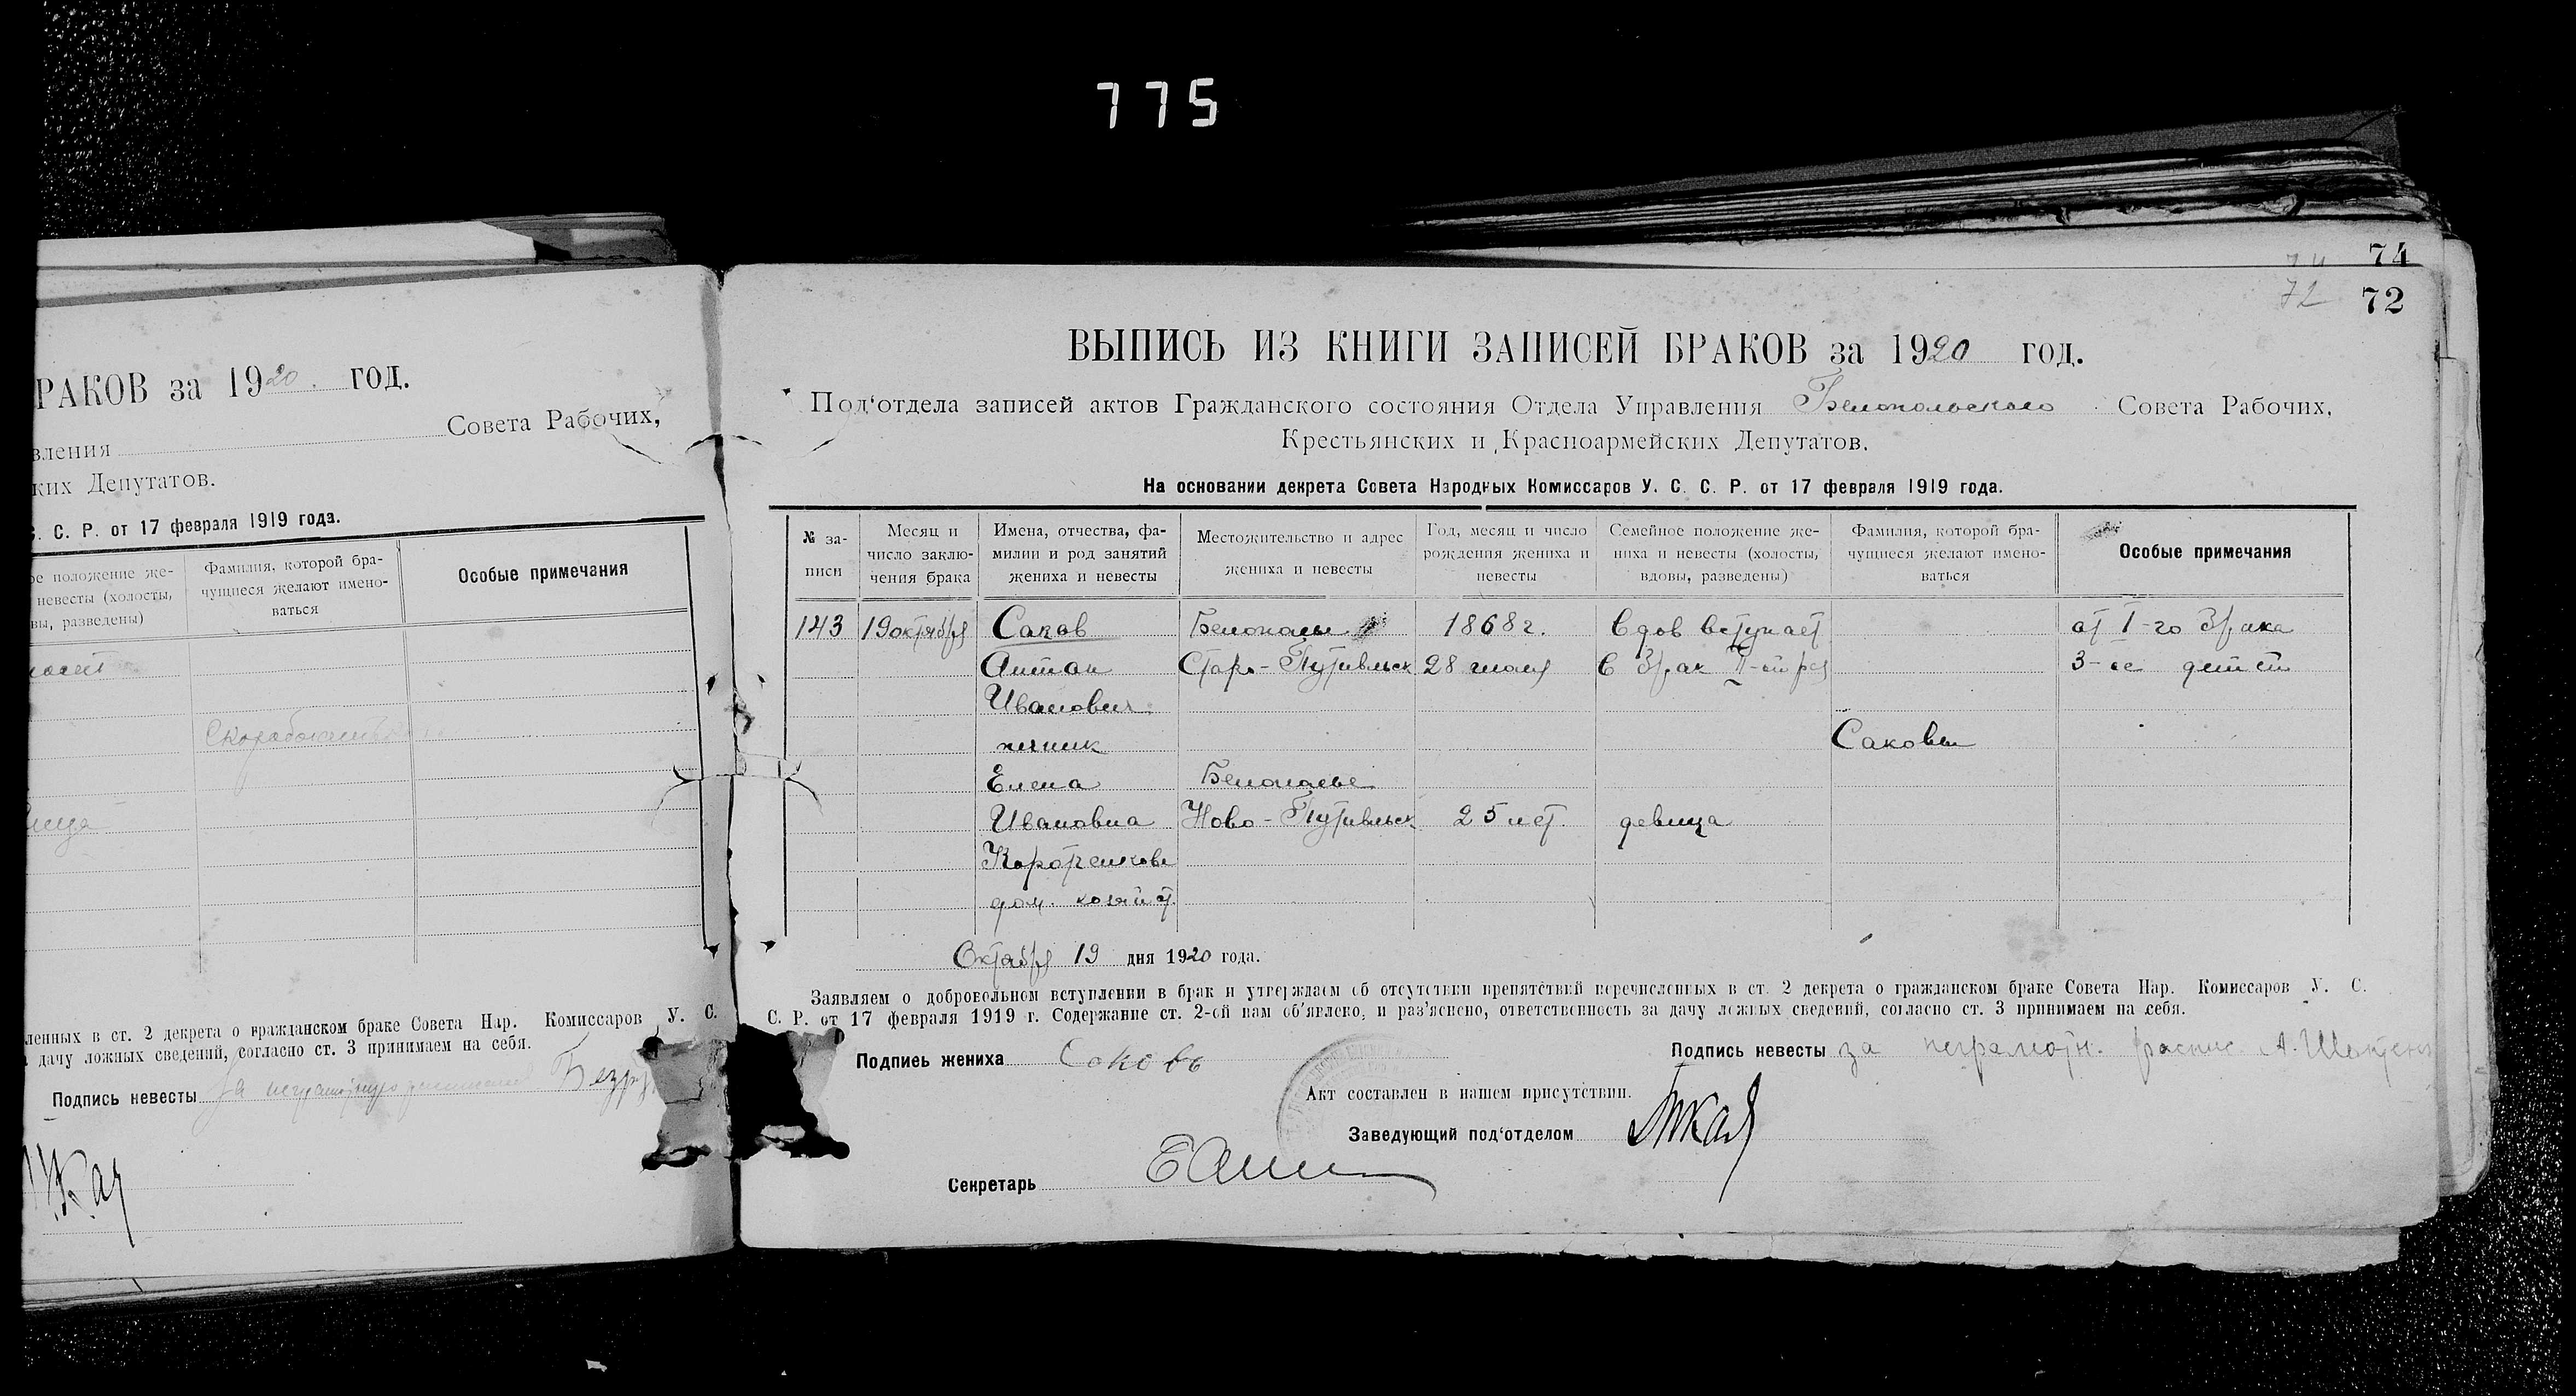 775
РАКОВ за 1920 год.
вления Совета Рабочих,
ких Депутатов.
С. С. Р. от 17 февраля 1919 года.
ое положение же-
невесты (холосты,
вы, разведены)
Фамилия, которой бра-
чущиеся желают имено-
ваться
Особые примечания
ленных в ст. 2 декрета о гражданском браке Совета Нар. Комиссаров У. С.
дачу ложных сведений, согласно ст. 3 принимаем на себя.
Подпись невесты За неграмотную
74
72
72
ВЫПИСЬ ИЗ КНИГИ ЗАПИСЕЙ БРАКОВ за 1920 год.
Под'отдела записей актов Гражданского состояния Отдела Управления Белопольского Совета Рабочих,
Крестьянских и Красноармейских Депутатов.
На основании декрета Совета Народных Комиссаров У. С. С. Р. от 17 февраля 1919 года.
№ за-
писи
Месяц и
число заклю-
чения брака
Имена, отчества, фа-
милии и род занятий
жениха и невесты
Местожительство и адрес
жениха и невесты
Год, месяц и число
рождения жениха и
невесты
Семейное положение же-
ниха и невесты (холосты,
вдовы, разведены)
Фамилия, которой бра-
чущиеся желают имено-
ваться
Особые примечания
143 19 октября Саков Белополье 1868 г. вдов вступает от I-го брака
Антон Старо-Путивльск 28 в брак II-ой раз 3-ое детей
Иванович
печник Саковы
Елена Белополье
Ивановна Ново-Путивльск 25 лет девица
Коротенкова
дом. хозяйст.
Октября 19 дня 1920 года.
Заявляем о добровольном вступлении в брак и утверждаем об отсутствии препятствий перечисленных в ст. 2 декрета о гражданском браке Совета Нар. Комиссаров У. С.
С. Р. от 17 февраля 1919 г. Содержание ст. 2-ой нам об'явлено, и раз'яснено, ответственность за дачу ложных сведений, согласно ст. 3 принимаем на себя.
Подпись жениха Соковъ
Подпись невесты за неграмотн. распис. А.
Акт составлен в нашем присутствии.
Заведующий под'отделом
Секретарь